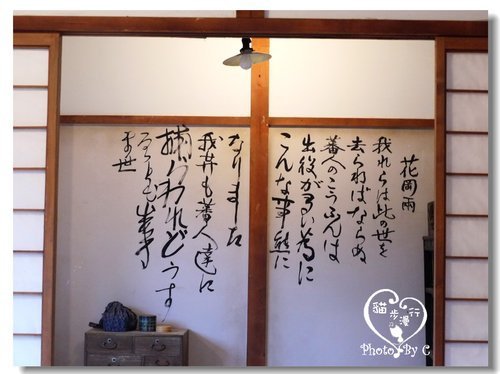 花岡兩
我れらは此の世を
去らねばならぬ
蕃人のこうふんは
出役が多い為に
こんな事件に
なりました
我井も蕃人達に
捕らわれどうす
ることも出来ず
ま世
貓步漫行
Photo By C